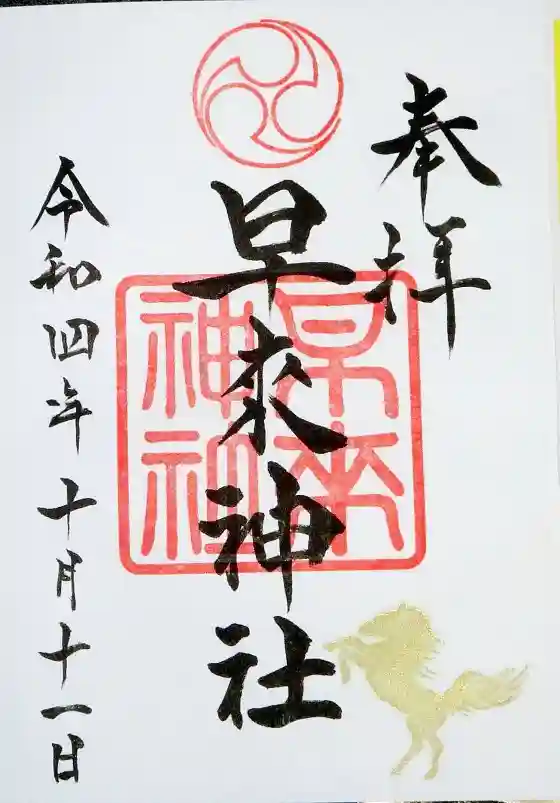 奉拝
早来神社
早来
神社
令和四年十月十一日